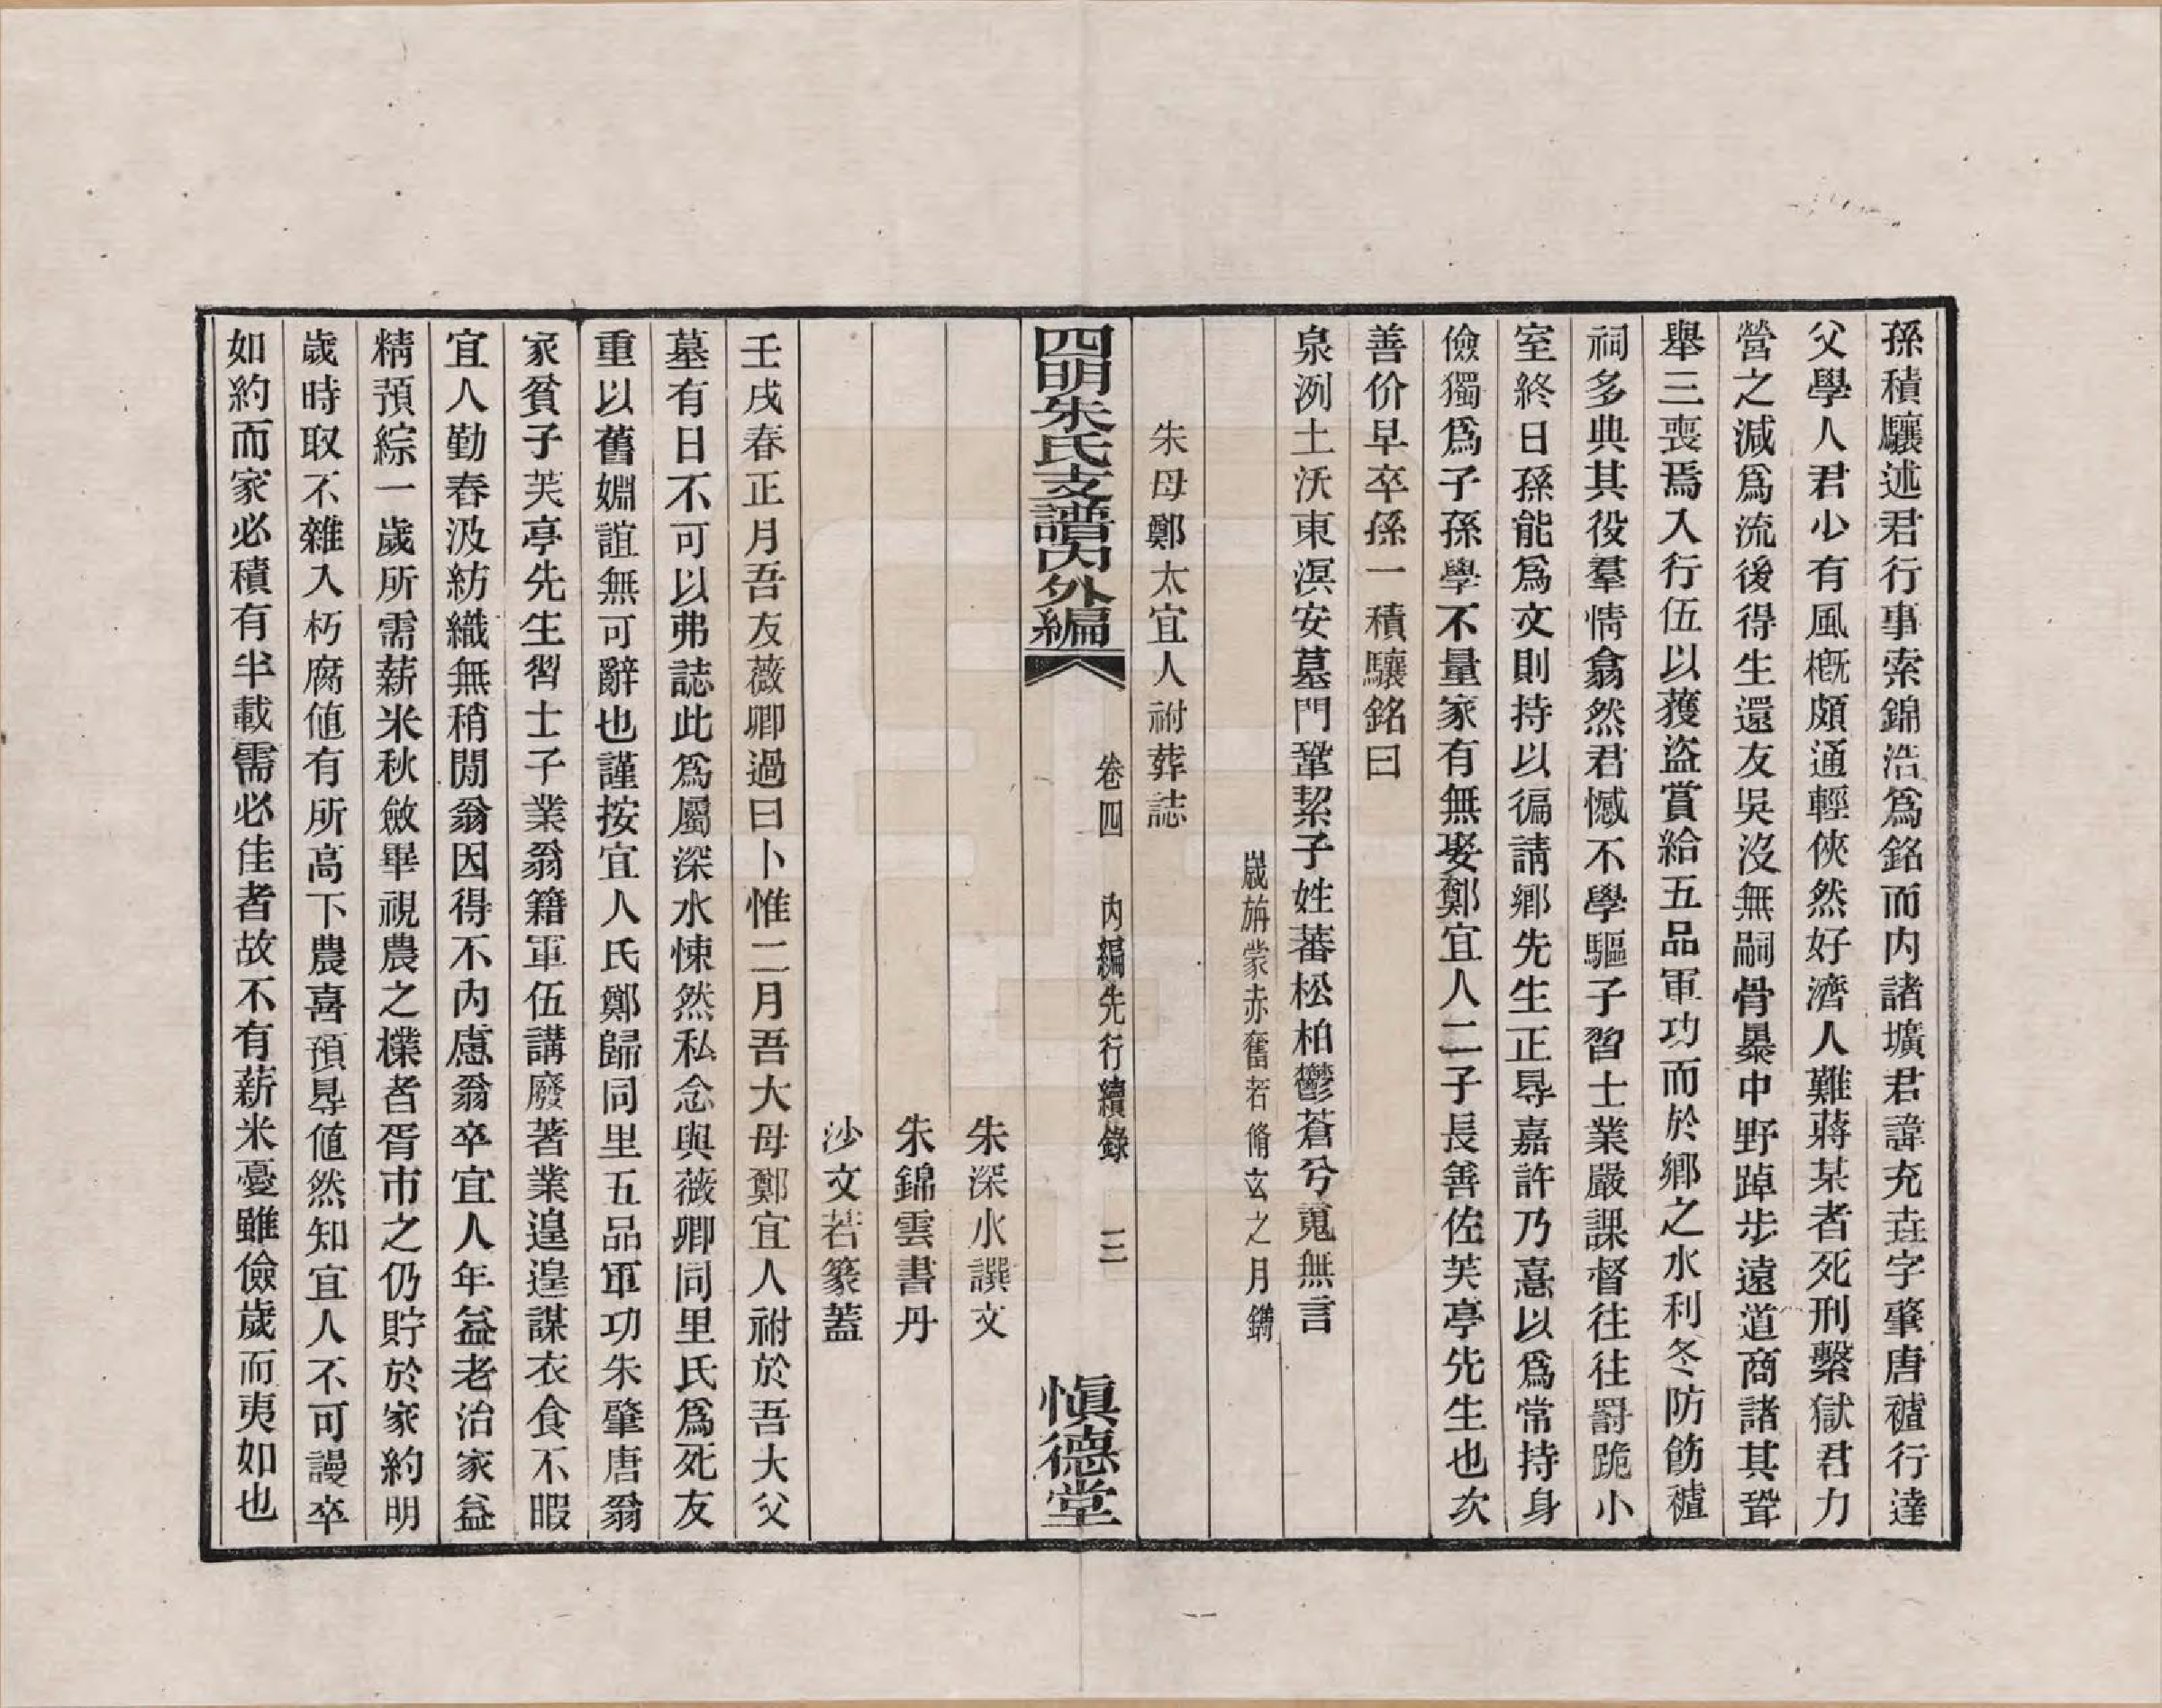 孫積驤述君行事索錦浩爲銘而内諸壙君諱充垚字肇唐禮行達
父學人君少有風槪頗通輕俠然好濟人難蔣某者死刑繫獄君力
營之減爲流後得生還友吳沒無嗣骨暴中野踔步遠道商諸其聟
舉三喪焉入行伍以獲盜賞給五品軍功而於鄉之水利冬防飭禮
祠多典其役羣情翕然君憾不學驅子習士業嚴課督往往罰跪小
室終日孫能爲文則持以徧請鄉先生正㝵嘉許乃憙以爲常持身
儉獨爲子孫學不量家有無娶鄭宜人二子長善佐芙亭先生也次
善价早卒孫一積驤銘曰
泉洌土沃東溟安墓門鞏絜子姓蕃松柏鬱蒼兮䰟無言
歲旃蒙赤奮若脩玄之月鐫
朱母鄭太宜人祔葬誌
四明朱氏支譜内外編
卷四
内編先行續錄
三
慎德堂
朱深水譔文
朱錦雲書丹
沙文若篆蓋
壬戌春正月吾友薇卿過曰卜惟二月吾大母鄭宜人祔於吾大父
墓有日不可以弗誌此爲屬深水悚然私念與薇卿同里氏爲死友
重以舊婣誼無可辭也謹按宜人氏鄭歸同里五品軍功朱肇唐翁
家貧子芙亭先生習士子業翁籍軍伍講廢著業遑遑謀衣食不暇
宜人勤舂汲紡織無稍閒翁因得不内慮翁卒宜人年益老治家益
精預綜一歲所需薪米秋斂畢視農之檏者胥市之仍貯於家約明
歲時取不雜入朽腐値有所高下農喜預㝵値然知宜人不可謾卒
如約而家必積有半載需必佳者故不有薪米憂雖儉歲而夷如也